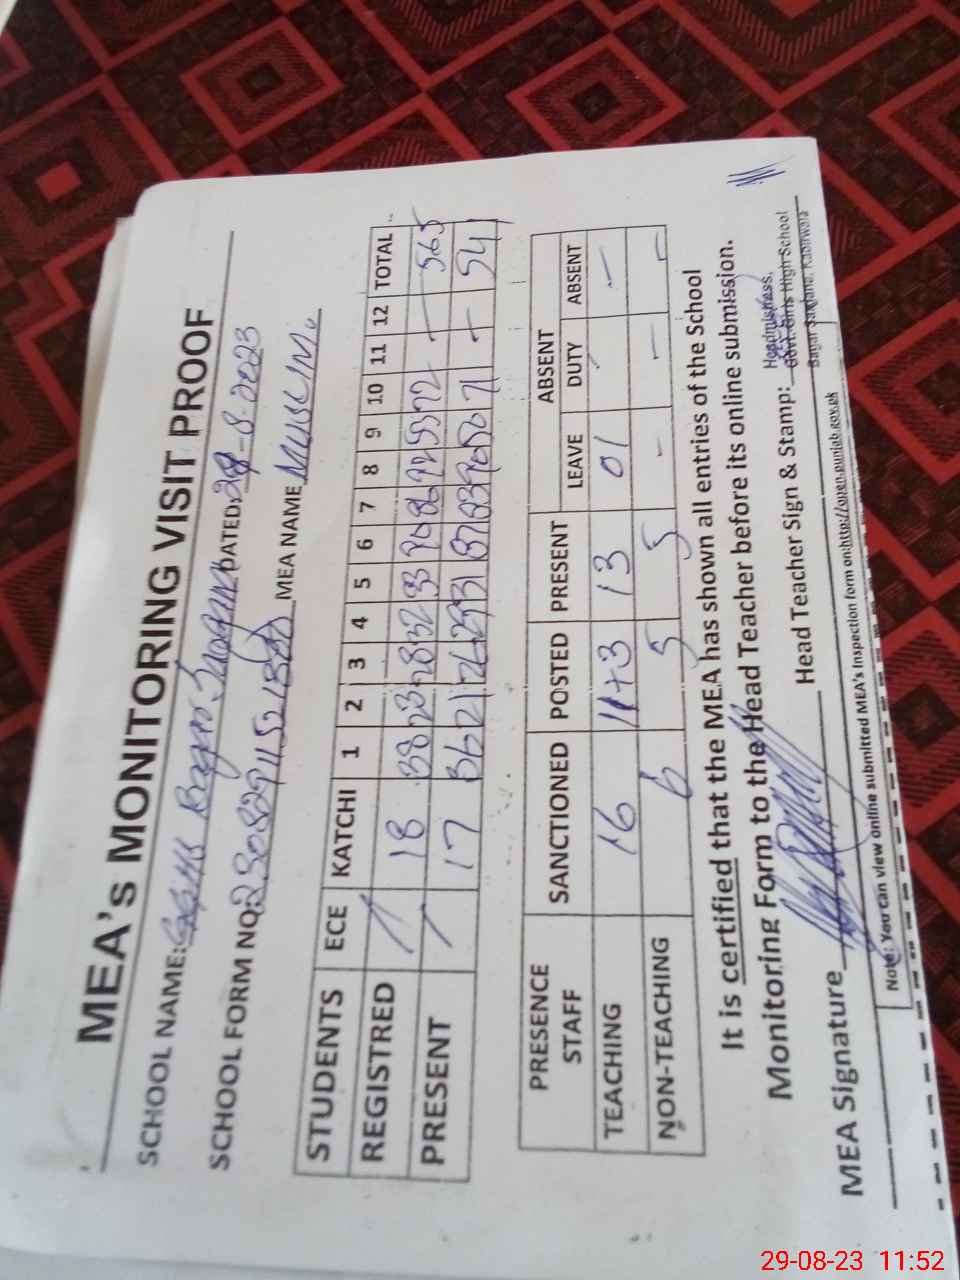 MEA's MONITORING VISIT PROOF
SCHOOL NAME: GGHS Bagar DATED: -8-2023
SCHOOL FORM NO. MEA NAME MUSLIM
STUDENTS ECE KATCHI 1 2 3 4 5 6 7 8 9 10 11 12 TOTAL
REGISTRED / 18 38 23 28 32 33 90 86 92 53 72 — — 565
PRESENT / 17 36 21 26 29 31 87 83 90 50 71 — — 541
PRESENCE STAFF SANCTIONED POSTED PRESENT ABSENT
LEAVE DUTY ABSENT
TEACHING 16 11+3 13 01 — —
NON-TEACHING 6 5 5 — — —
It is certified that the MEA has shown all entries of the School
Monitoring Form to the Head Teacher before its online submission.
Headmistress,
Govt: Girls High School
Bagar Sargana, Kabirwala
MEA Signature Head Teacher Sign & Stamp:
Note: You can view online submitted MEA's Inspection form on:http://open.punjab.gov.pk
29-08-23 11:52